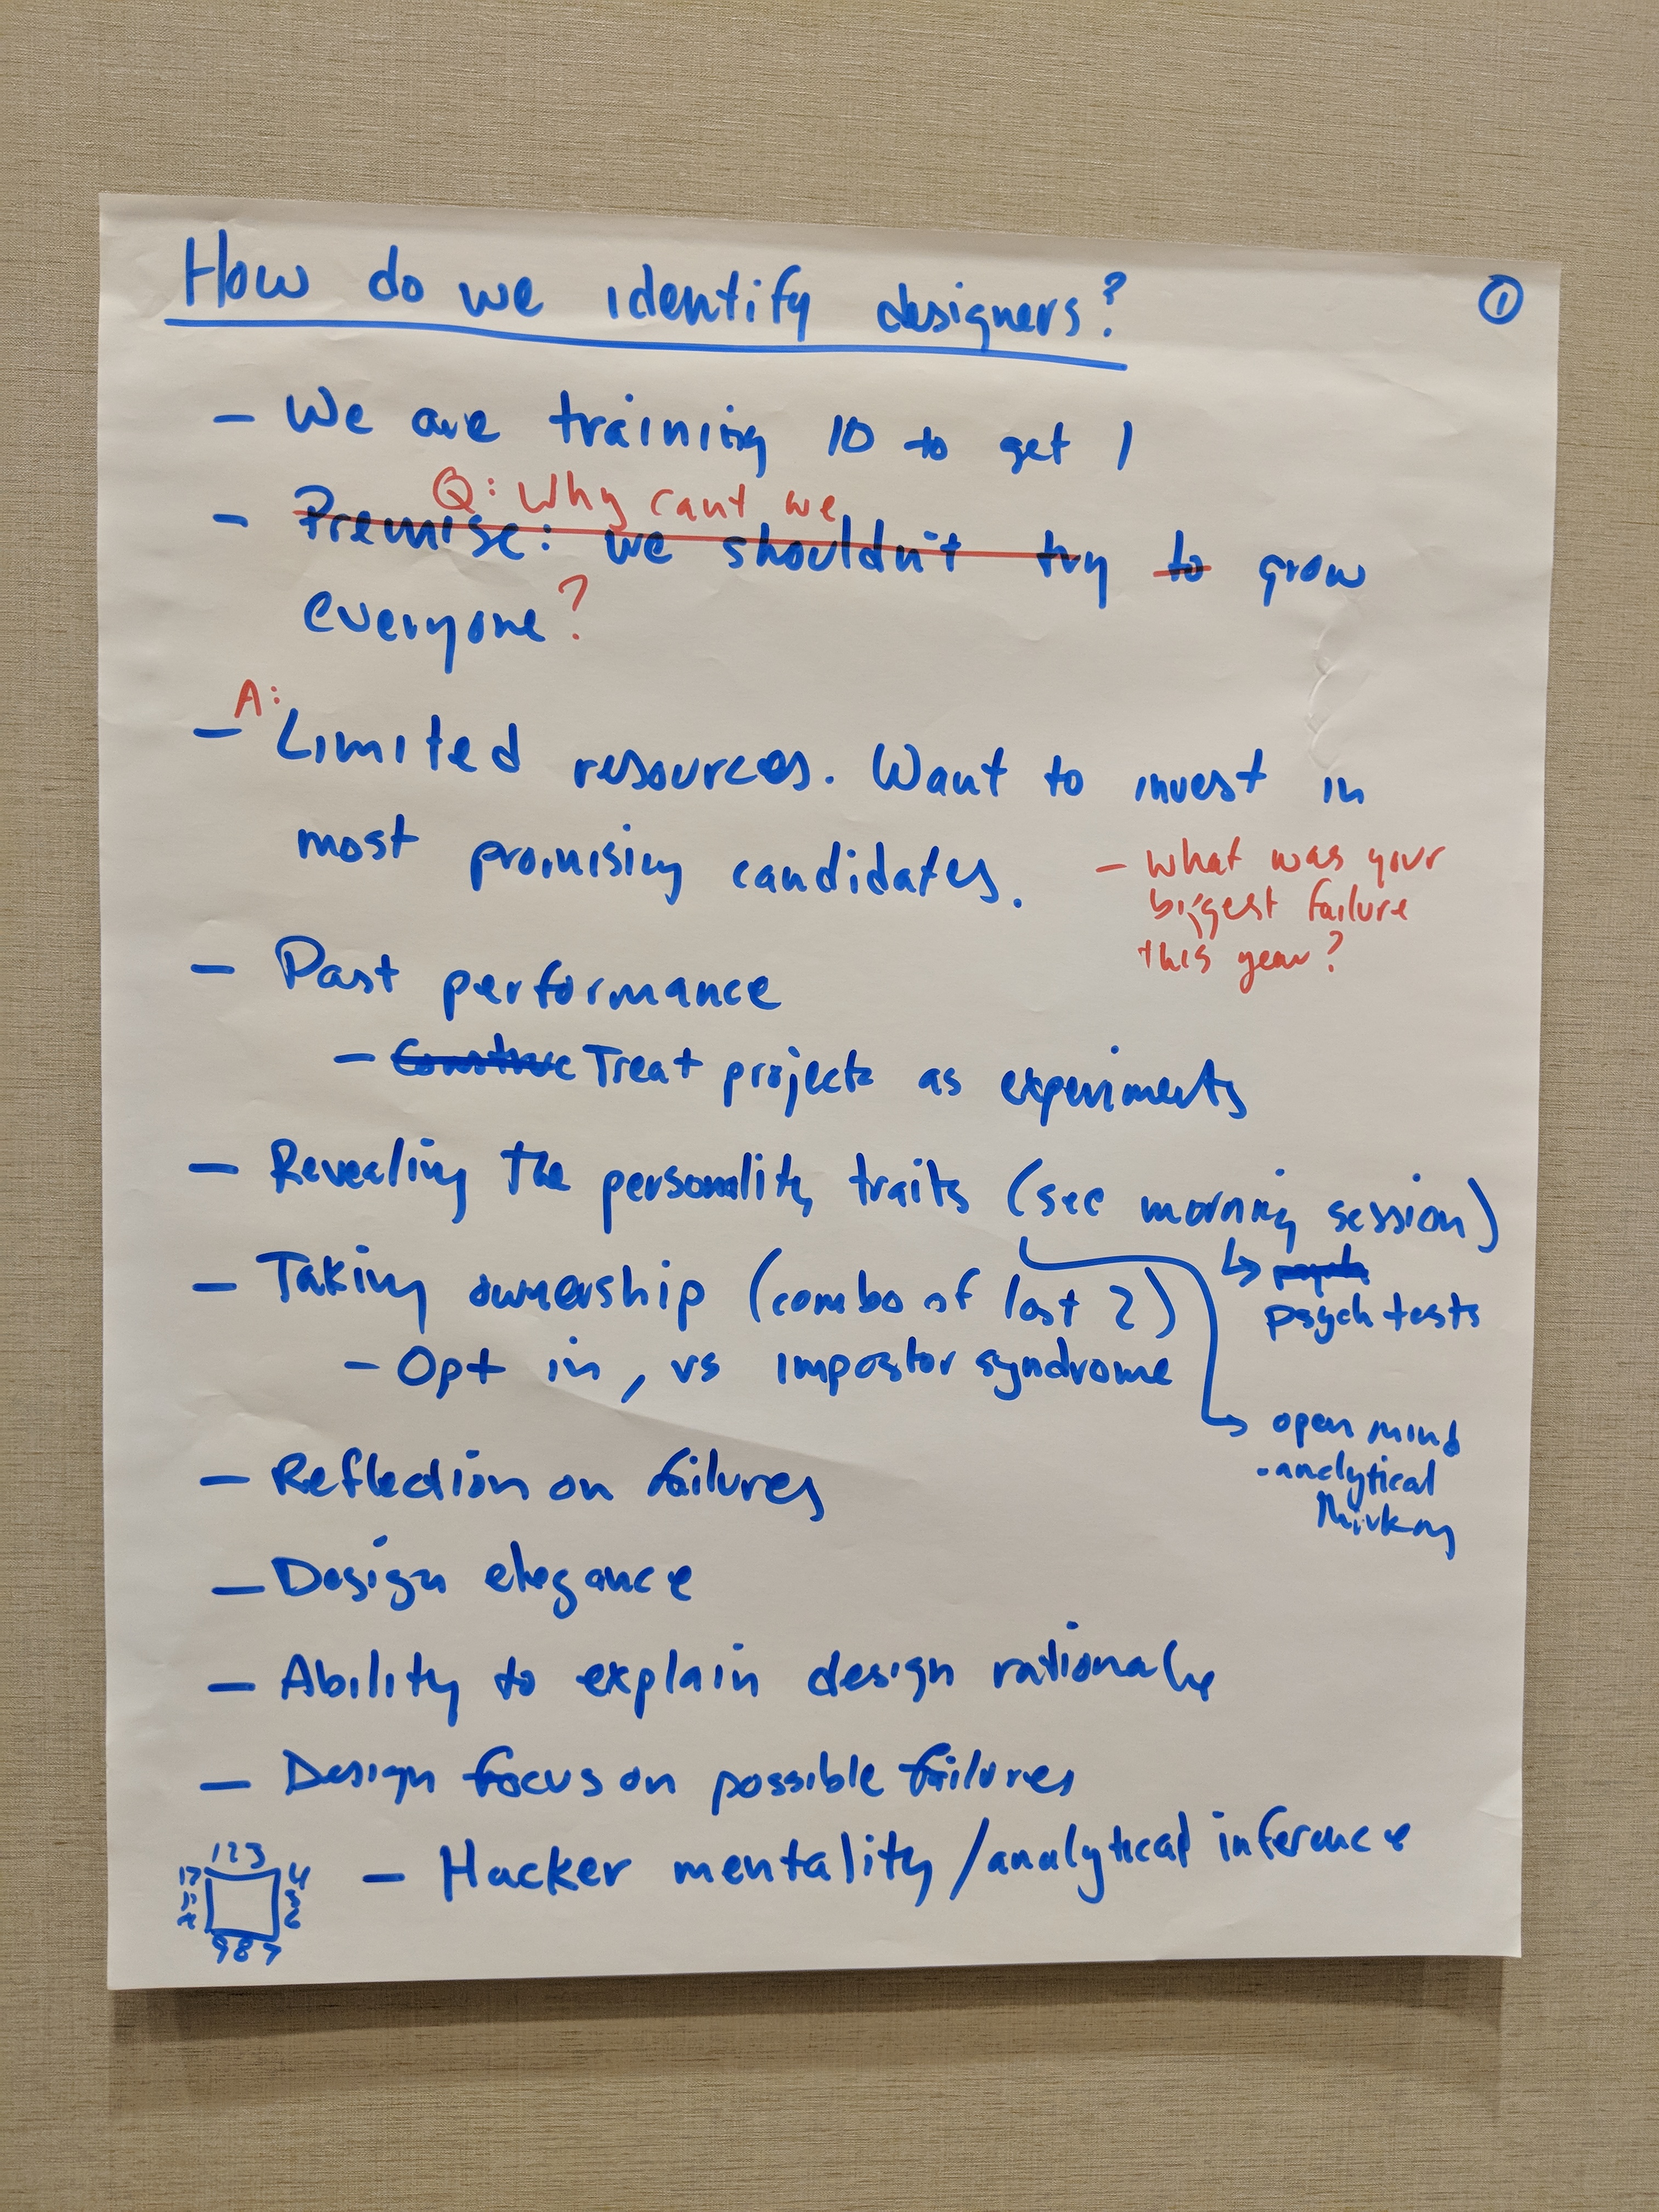 How do we identify designers?
1
- We are training 10 to get 1
Q: Why cant we
- Premise: we shouldn't try to grow
everyone?
A:
- Limited resources. Want to invest in
most promising candidates.
- what was your
biggest failure
this year?
- Past performance
- Construc Treat projects as experiments
- Revealing the personality traits (see morning session)
psych tests
- Taking ownership (combo of last 2)
- Opt in, vs impostor syndrome
open mind
·analytical
thinking
- Reflection on failures
- Design elegance
- Ability to explain design rationale
- Design focus on possible failures
- Hacker mentality/analytical inference
1 2 3
4
5
6
9 8 7